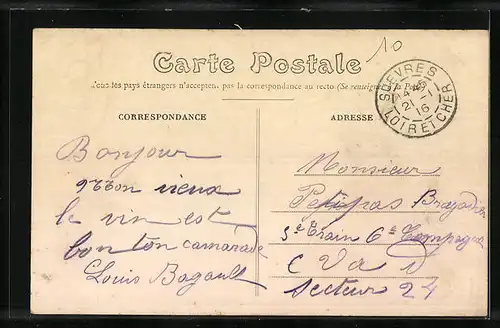 10
Carte Postale
Tous les pays étrangers n'acceptent pas la correspondance au recto (Se renseigner à la Poste)
SUEVRES
21 -1
16
LOIR ET CHER
CORRESPONDANCE
ADRESSE
Bonjour
Mon vieux
le vin est
bon ton camarade
Louis Bagault
Monsieur
Petitpas
5e Train 6e Compagnie
secteur 24